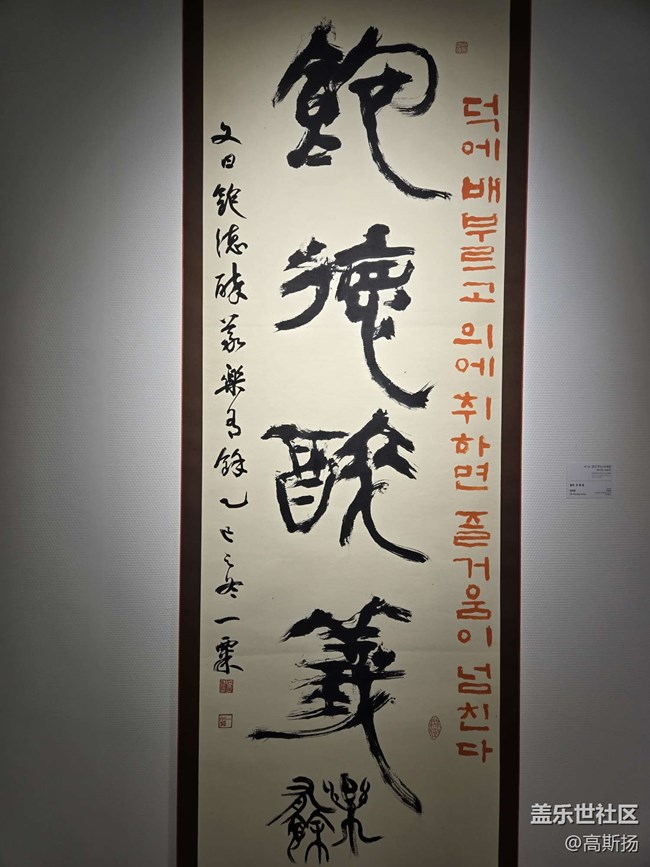 덕에 배부르고 의에 취하면 즐거움이 넘친다
飽德醉義
樂有餘
文曰飽德醉義樂有餘乙巳之冬一粟
盖乐世社区
@高斯扬